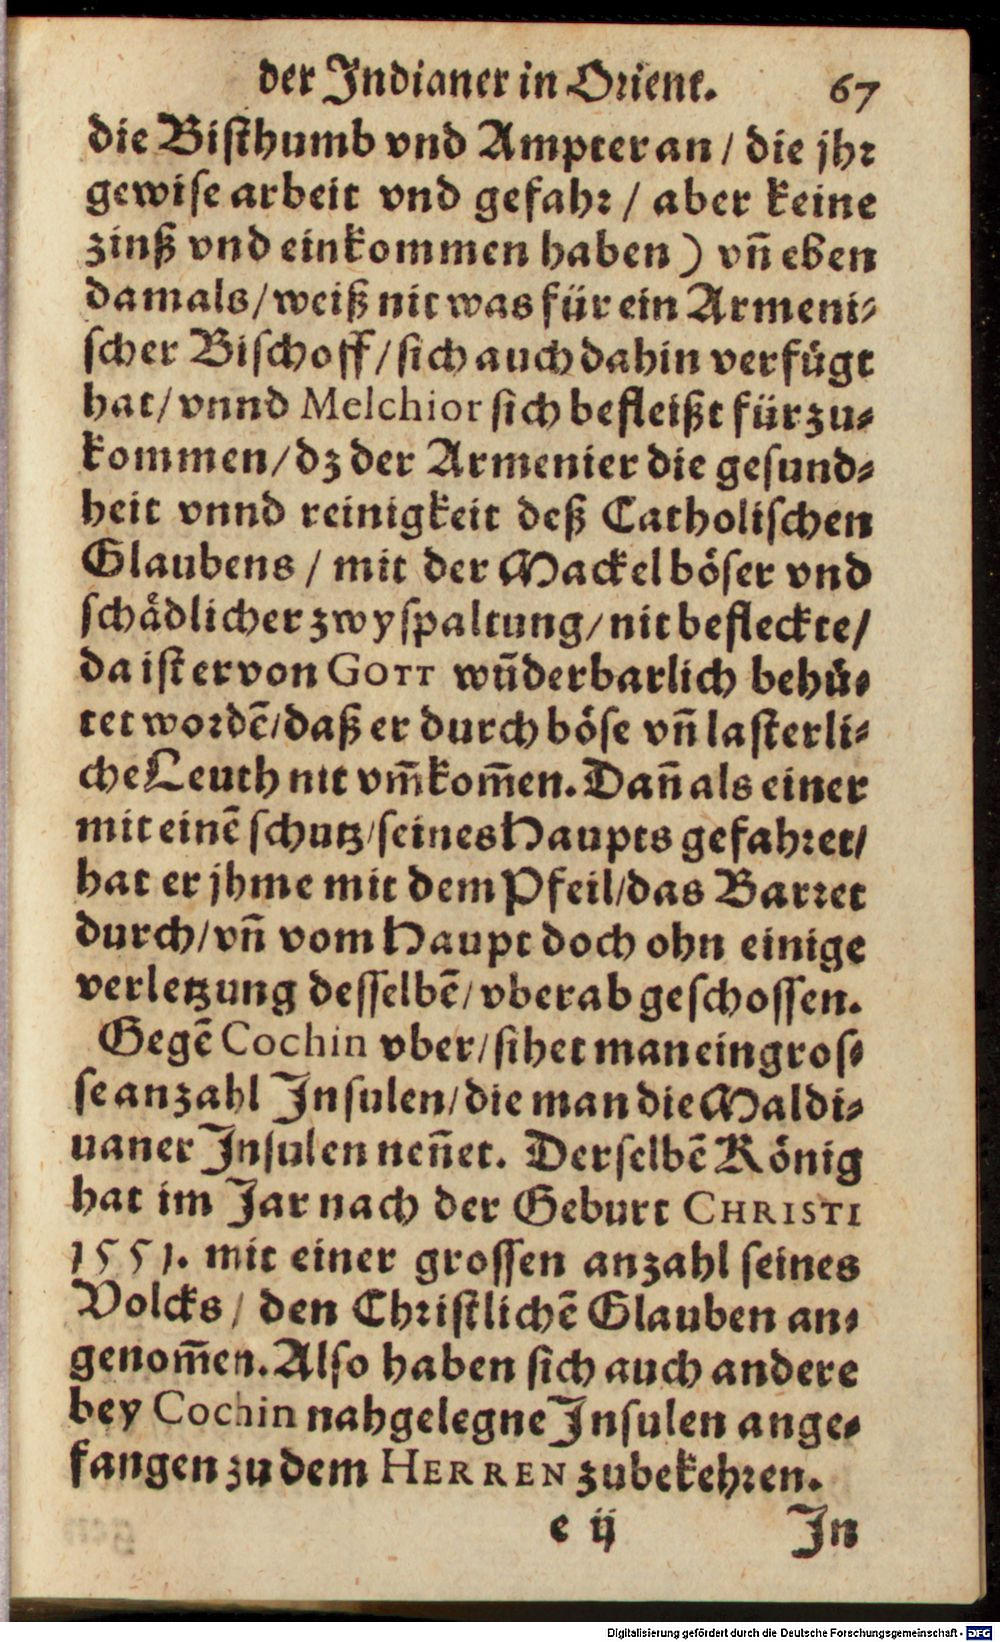 der Indianer in Orient. 67
die Bisthumb vnd Ampter an / die jhr
gewise arbeit vnd gefahr / aber keine
zinß vnd einkommen haben ) vn̄ eben
damals / weiß nit was für ein Armeni-
scher Bischoff / sich auch dahin verfügt
hat / vnnd Melchior sich befleißt für zu-
kommen / dz der Armenier die gesund-
heit vnnd reinigkeit deß Catholischen
Glaubens / mit der Mackel böser vnd
schädlicher zwyspaltung / nit befleckte /
da ist er von GOTT wūderbarlich behü-
tet wordē / daß er durch böse vn̄ lasterli-
che Leuth nit vm̄kom̄en. Dan̄ als einer
mit einē schutz / seines Haupts gefahret /
hat er jhme mit dem Pfeil / das Barret
durch / vn̄ vom Haupt doch ohn einige
verletzung desselbē / vberab geschossen.
Gegē Cochin vber / sihet man ein gros-
se anzahl Insulen / die man die Maldi-
uaner Insulen nen̄et. Derselbē König
hat im Jar nach der Geburt CHRISTI
1551. mit einer grossen anzahl seines
Volcks / den Christlichē Glauben an-
genom̄en. Also haben sich auch andere
bey Cochin nahgelegne Insulen ange-
fangen zu dem HERREN zubekehren.
e ij In
Digitalisierung gefördert durch die Deutsche Forschungsgemeinschaft - DFG